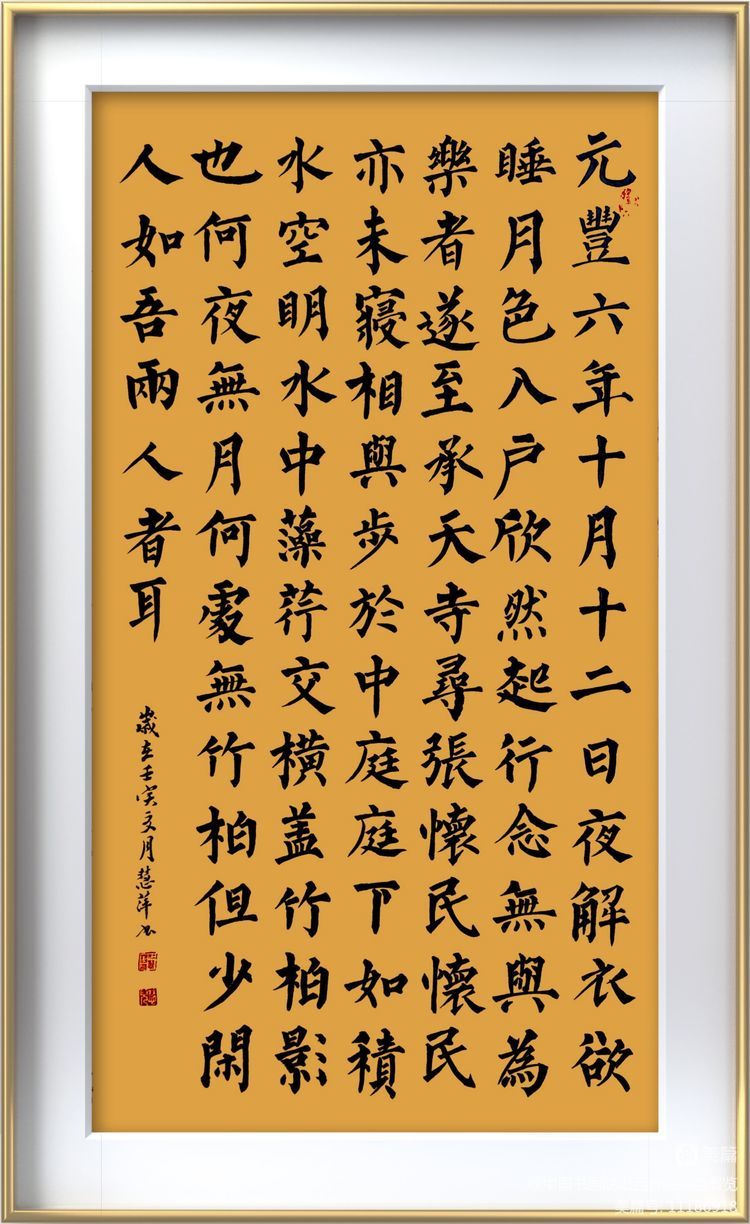 元豐六年十月十二日夜解衣欲
睡月色入户欣然起行念無與為
樂者遂至承天寺尋張懷民懷民
亦未寢相與步於中庭庭下如積
水空明水中藻荇交橫盖竹柏影
也何夜無月何處無竹柏但少閑
人如吾兩人者耳
歲在壬寅文月慧萍书
美篇